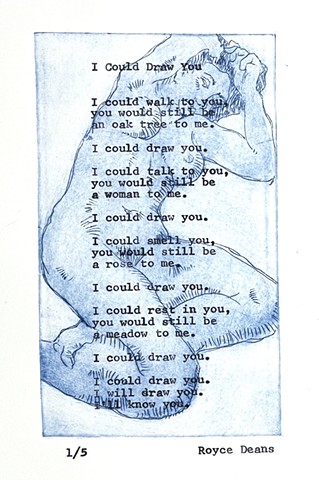 I Could Draw You
I could walk to you,
you would still be
an oak tree to me.
I could draw you.
I could talk to you,
you would still be
a woman to me.
I could draw you.
I could smell you,
you would still be
a rose to me.
I could draw you.
I could rest in you,
you would still be
a meadow to me.
I could draw you.
I could draw you.
I will draw you.
I'll know you.
1/5
Royce Deans